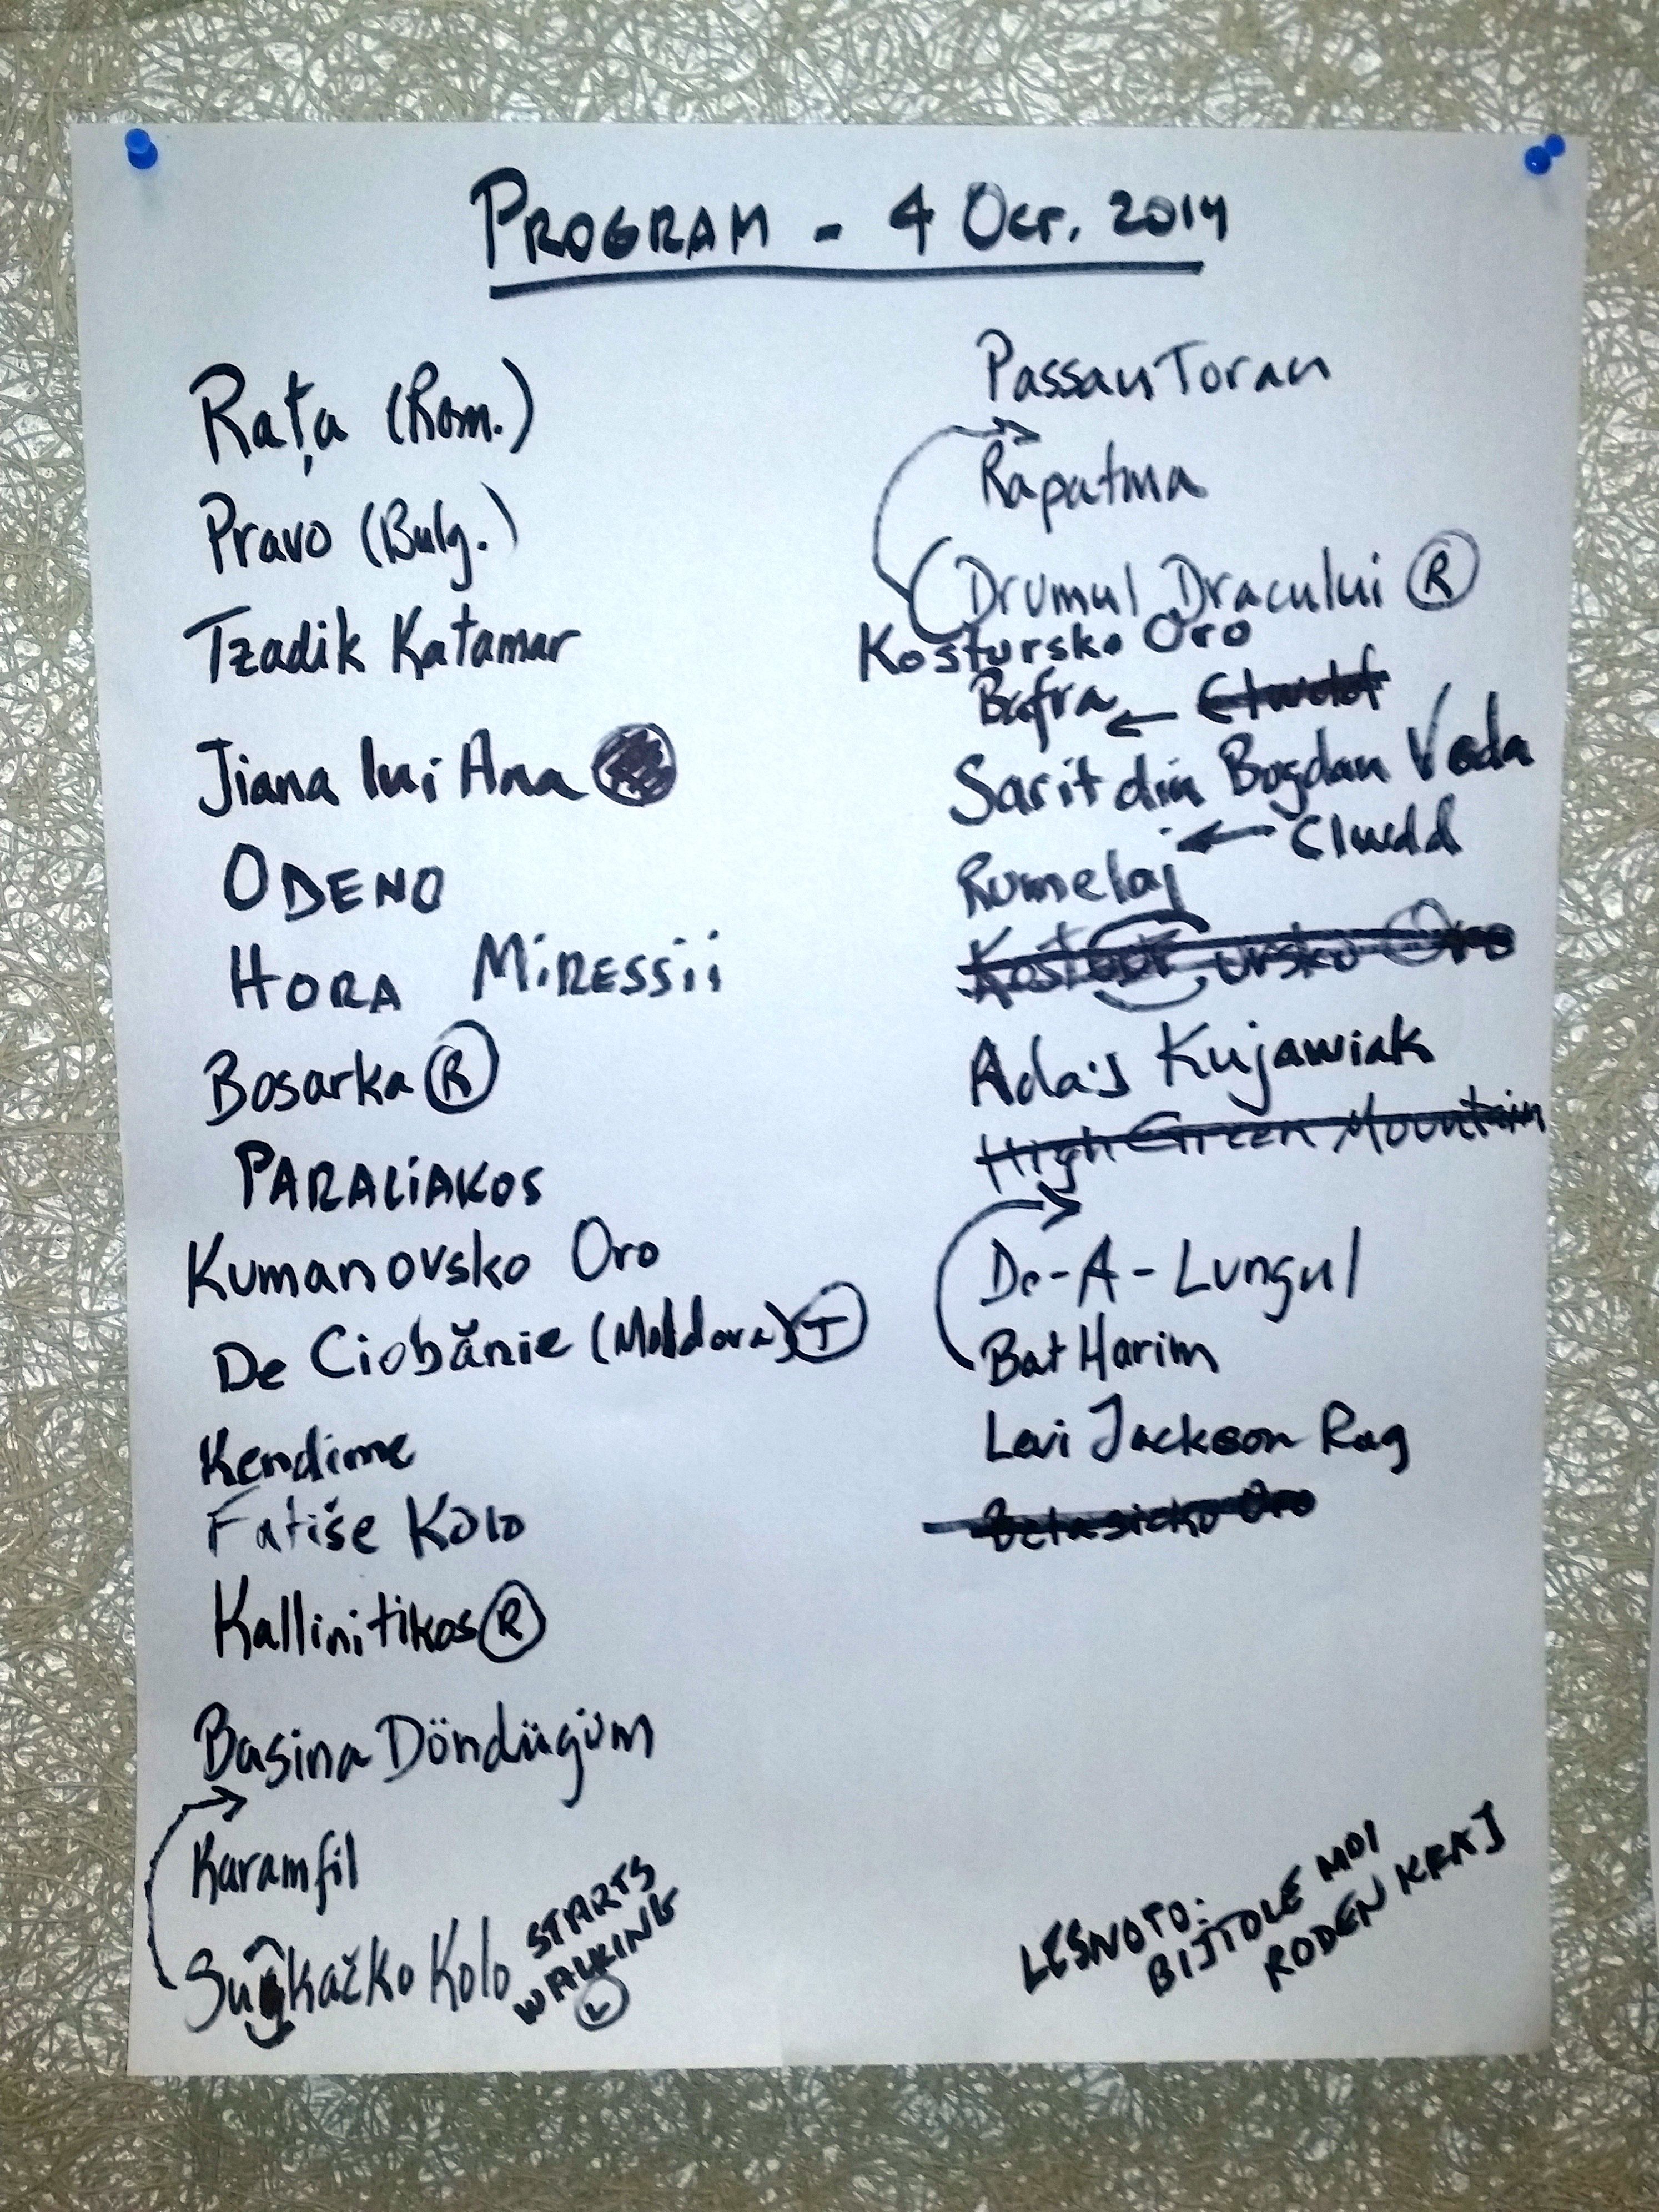 PROGRAM - 4 Oct. 2014
Rața (Rom.)
Pravo (Bulg.)
Tzadik Katamar
Jiana lui Ana
ODENO
HORA MIRESSII
Bosarka Ⓡ
PARALIAKOS
Kumanovsko Oro
De Ciobănie (Moldova) Ⓣ
Kendime
Fatiše Kolo
Kallinitikos Ⓡ
Basina Döndügüm
Karamfil
Sukačko Kolo
STARTS
WALKING
Ⓛ
Passau Toran
Rapatma
Drumul Dracului Ⓡ
Kostursko Oro
Bafra ← Clwdd
Sarit din Bogdan Voda
Rumelaj ← Clwdd
Kostursko Oro
Ada's Kujawiak
High Green Mountain
De-A-Lungul
Bat Harim
Levi Jackson Rag
Belasicko Oro
LESNOTO:
BIJTOLE MOI
RODEN KRAJ